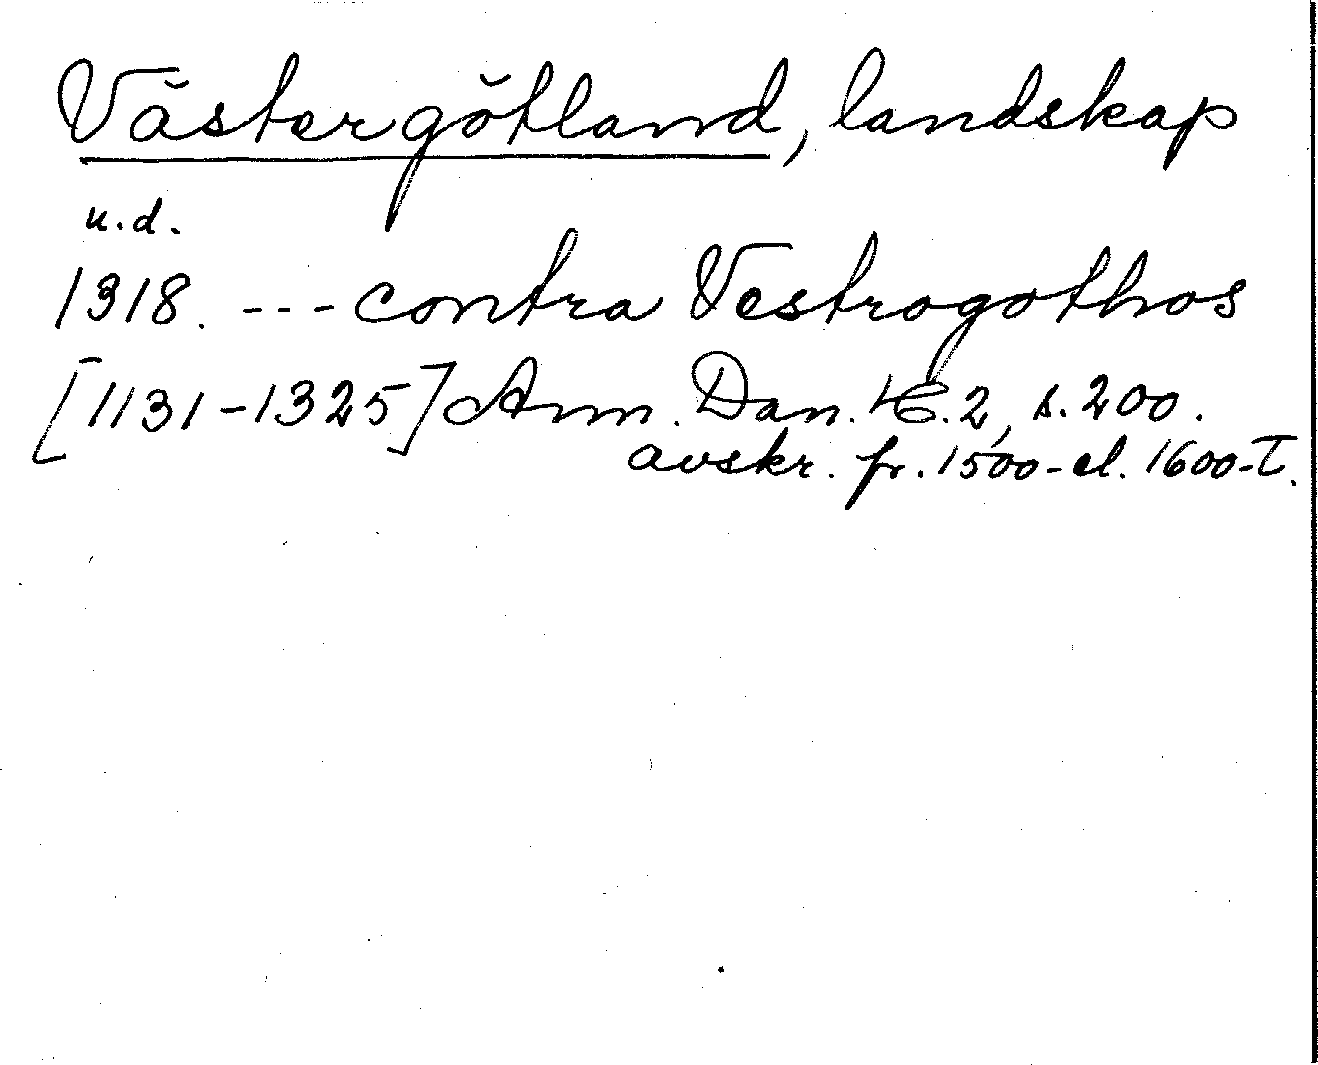 Västergötland, landskap
u.d.
1318. --- contra Vestrogothos
[1131-1325] Ann. Dan. 2, s. 200.
avskr. fr. 1500- el. 1600-T.